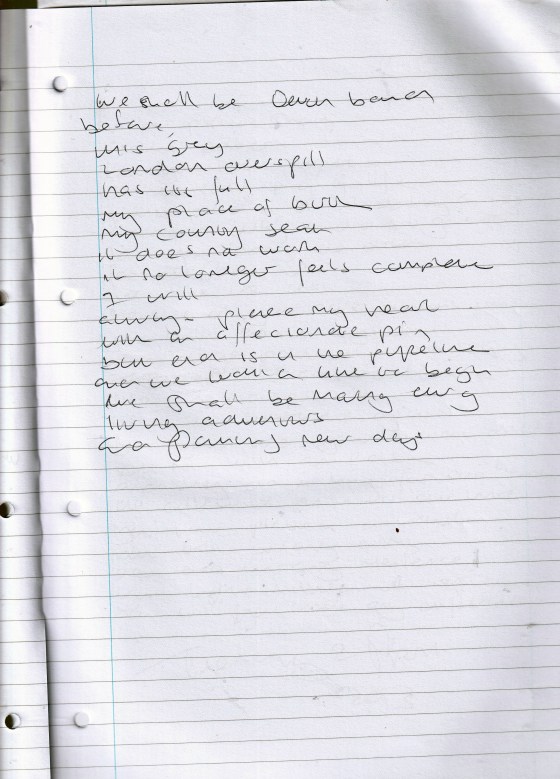 we shall be Devon bound
before
this grey
London overspill
has its full
my place of birth
my county seat
it does not work
it no longer feels complete
I will
always pierce my heart
with an affectionate pin
but era is in the pipeline
and we would like to begin
we shall be
living adventures
and new days